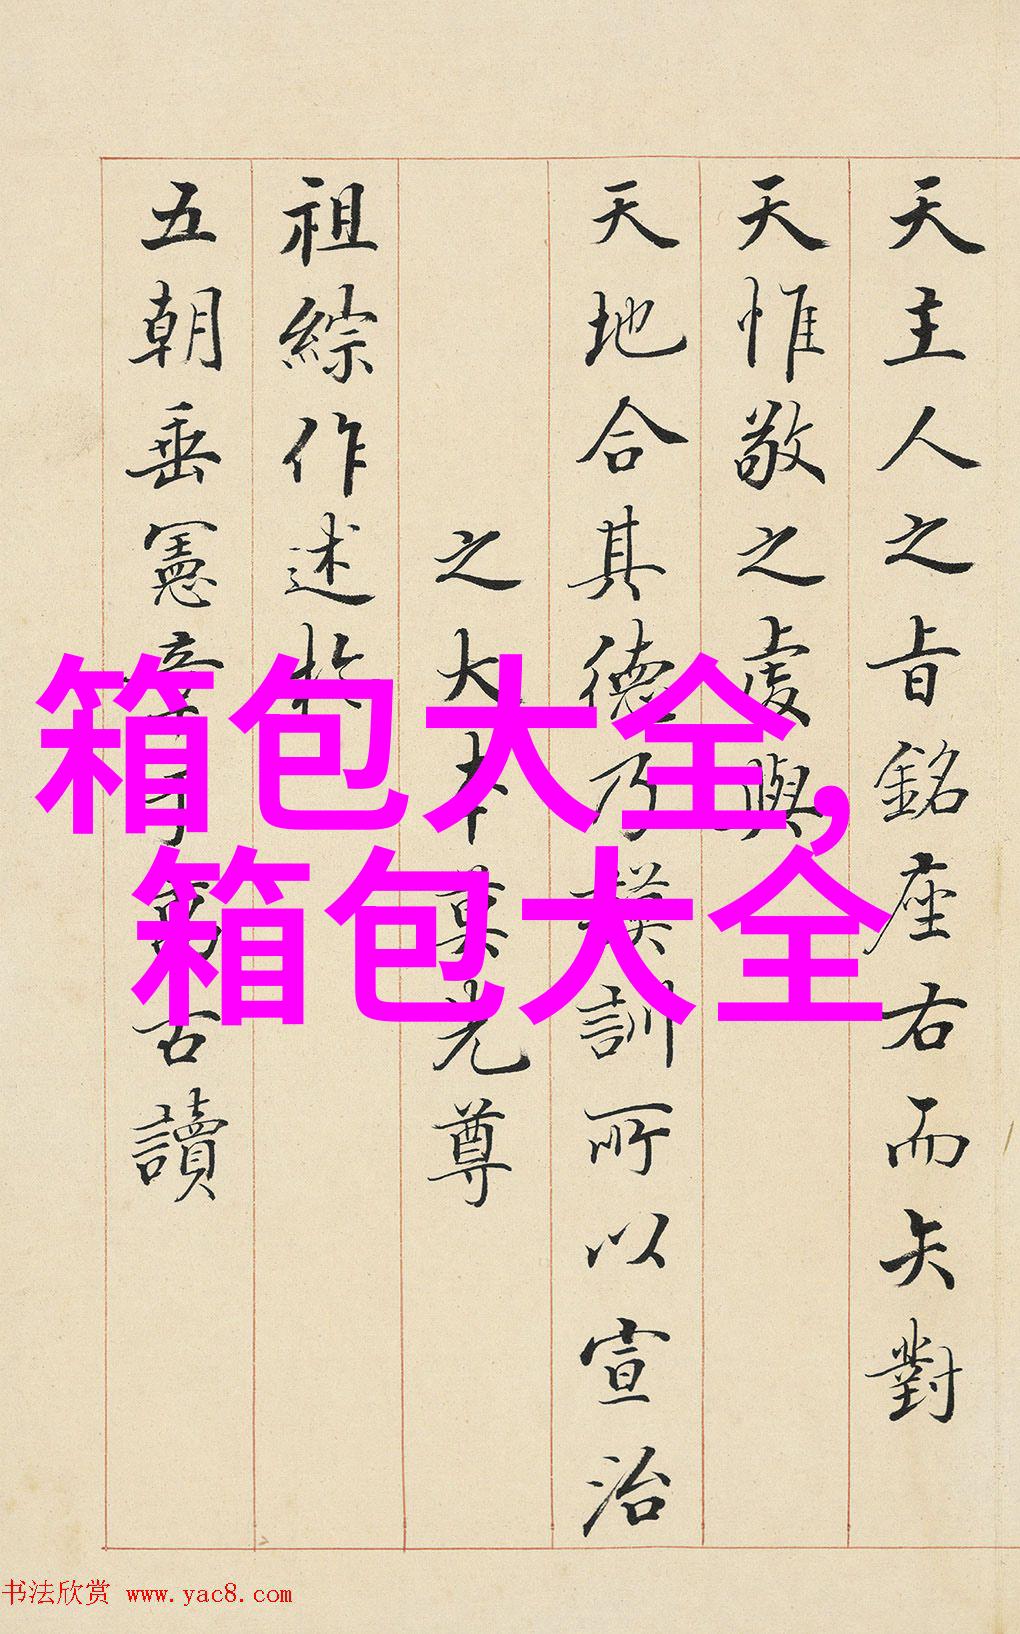 天主人之旨銘座右而矢對
天惟敬之處與
天地合其德乃謨訓所以宣治
之大本莫尤尊
祖綜作述於
五朝垂憲章于萬古讀
箱包大全,
箱包大全
书法欣赏 www.yac8.com